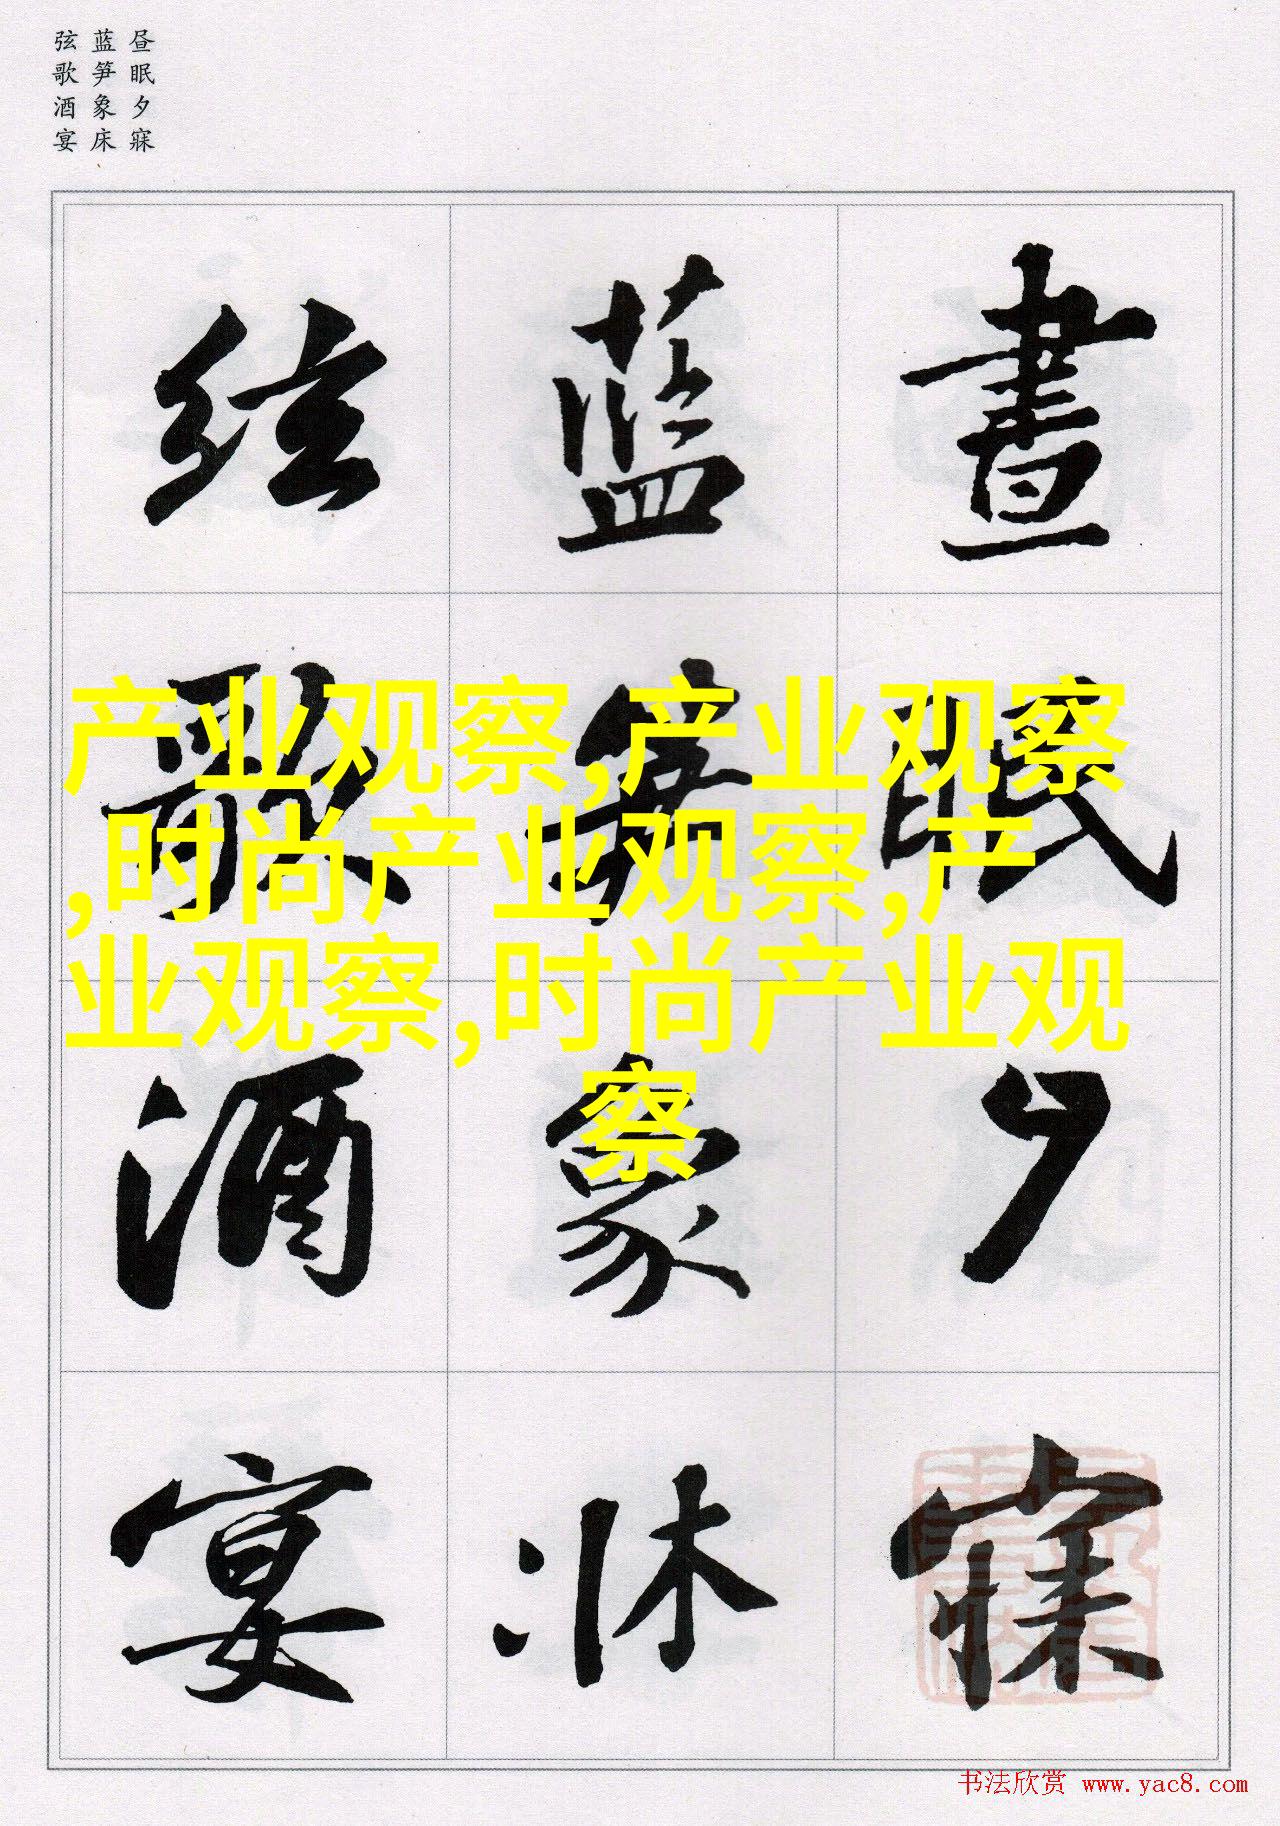 昼眠夕寐
蓝笋象床
弦歌酒宴
晝眠夕寐
蓝笋象牀
弦歌酒宴
产业观察,产业观察
,时尚产业观察,产
业观察,时尚产业观
察
书法欣赏 www.yac8.com